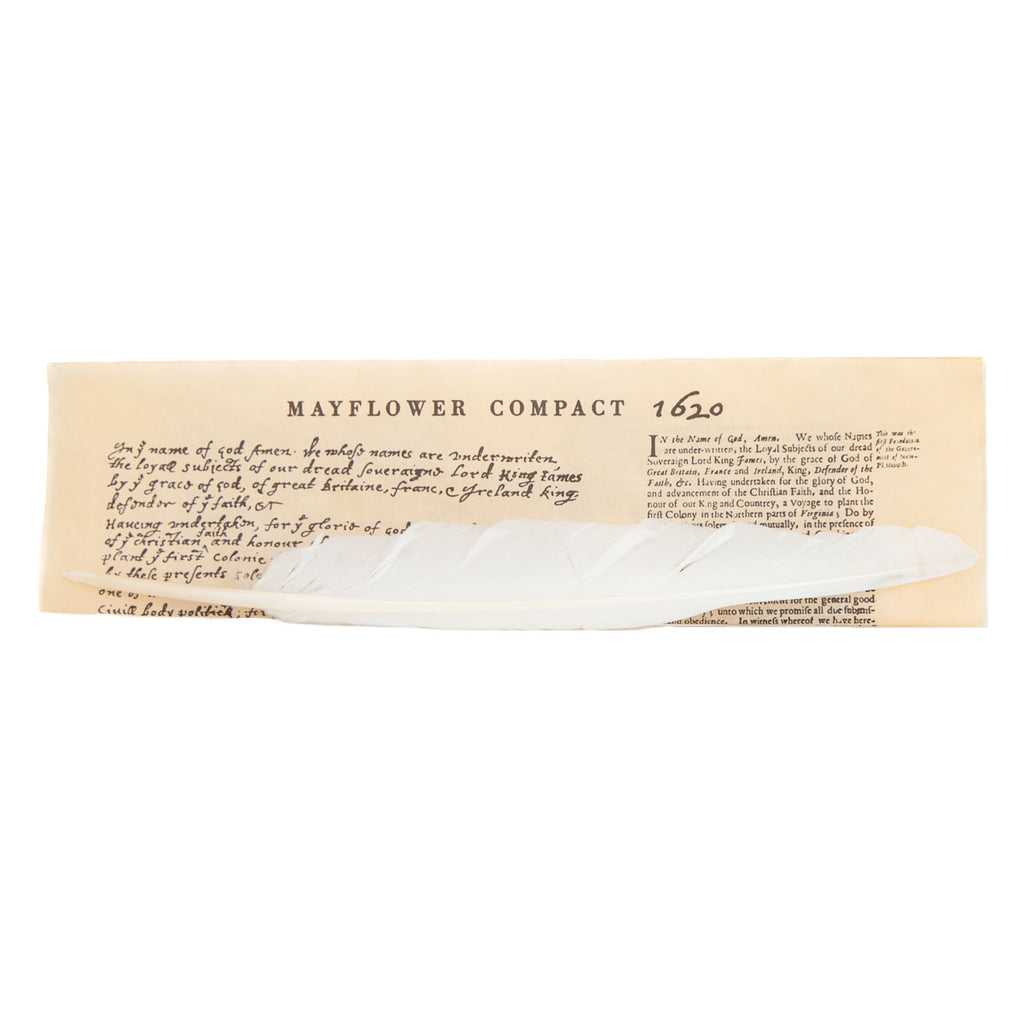 MAYFLOWER COMPACT 1620
In yͤ name of god Amen. We whoſe names are underwriten,
the loyall subjects of our dread soveraigne Lord King James
by yͤ grace of god, of great Britaine, franc, & Ireland king,
defender of yͤ faith, &c
Haveing undertaken, for yͤ glorie of god
faith
of yͤ christian, and honour
plant yͤ first colonie
by theſe preſents sole
one of
Civill body politick; for
IN the Name of God, Amen. We whoſe Names
are under-written, the Loyal Subjects of our dread
Soveraign Lord King James, by the grace of God of
Great Britain, France and Ireland, King, Defender of the
Faith, &c. Having undertaken for the glory of God,
and advancement of the Chriſtian Faith, and the Ho-
nour of our King and Countrey, a Voyage to plant the
firſt Colony in the Northern parts of Virginia; Do by
mutually, in the preſence of
for the general good
unto which we promiſe all due ſubmiſ-
and obedience. In witneſs whereof we have here-
This was the
firſt Foundation
of the Govern-
ment of New-
Plimouth.